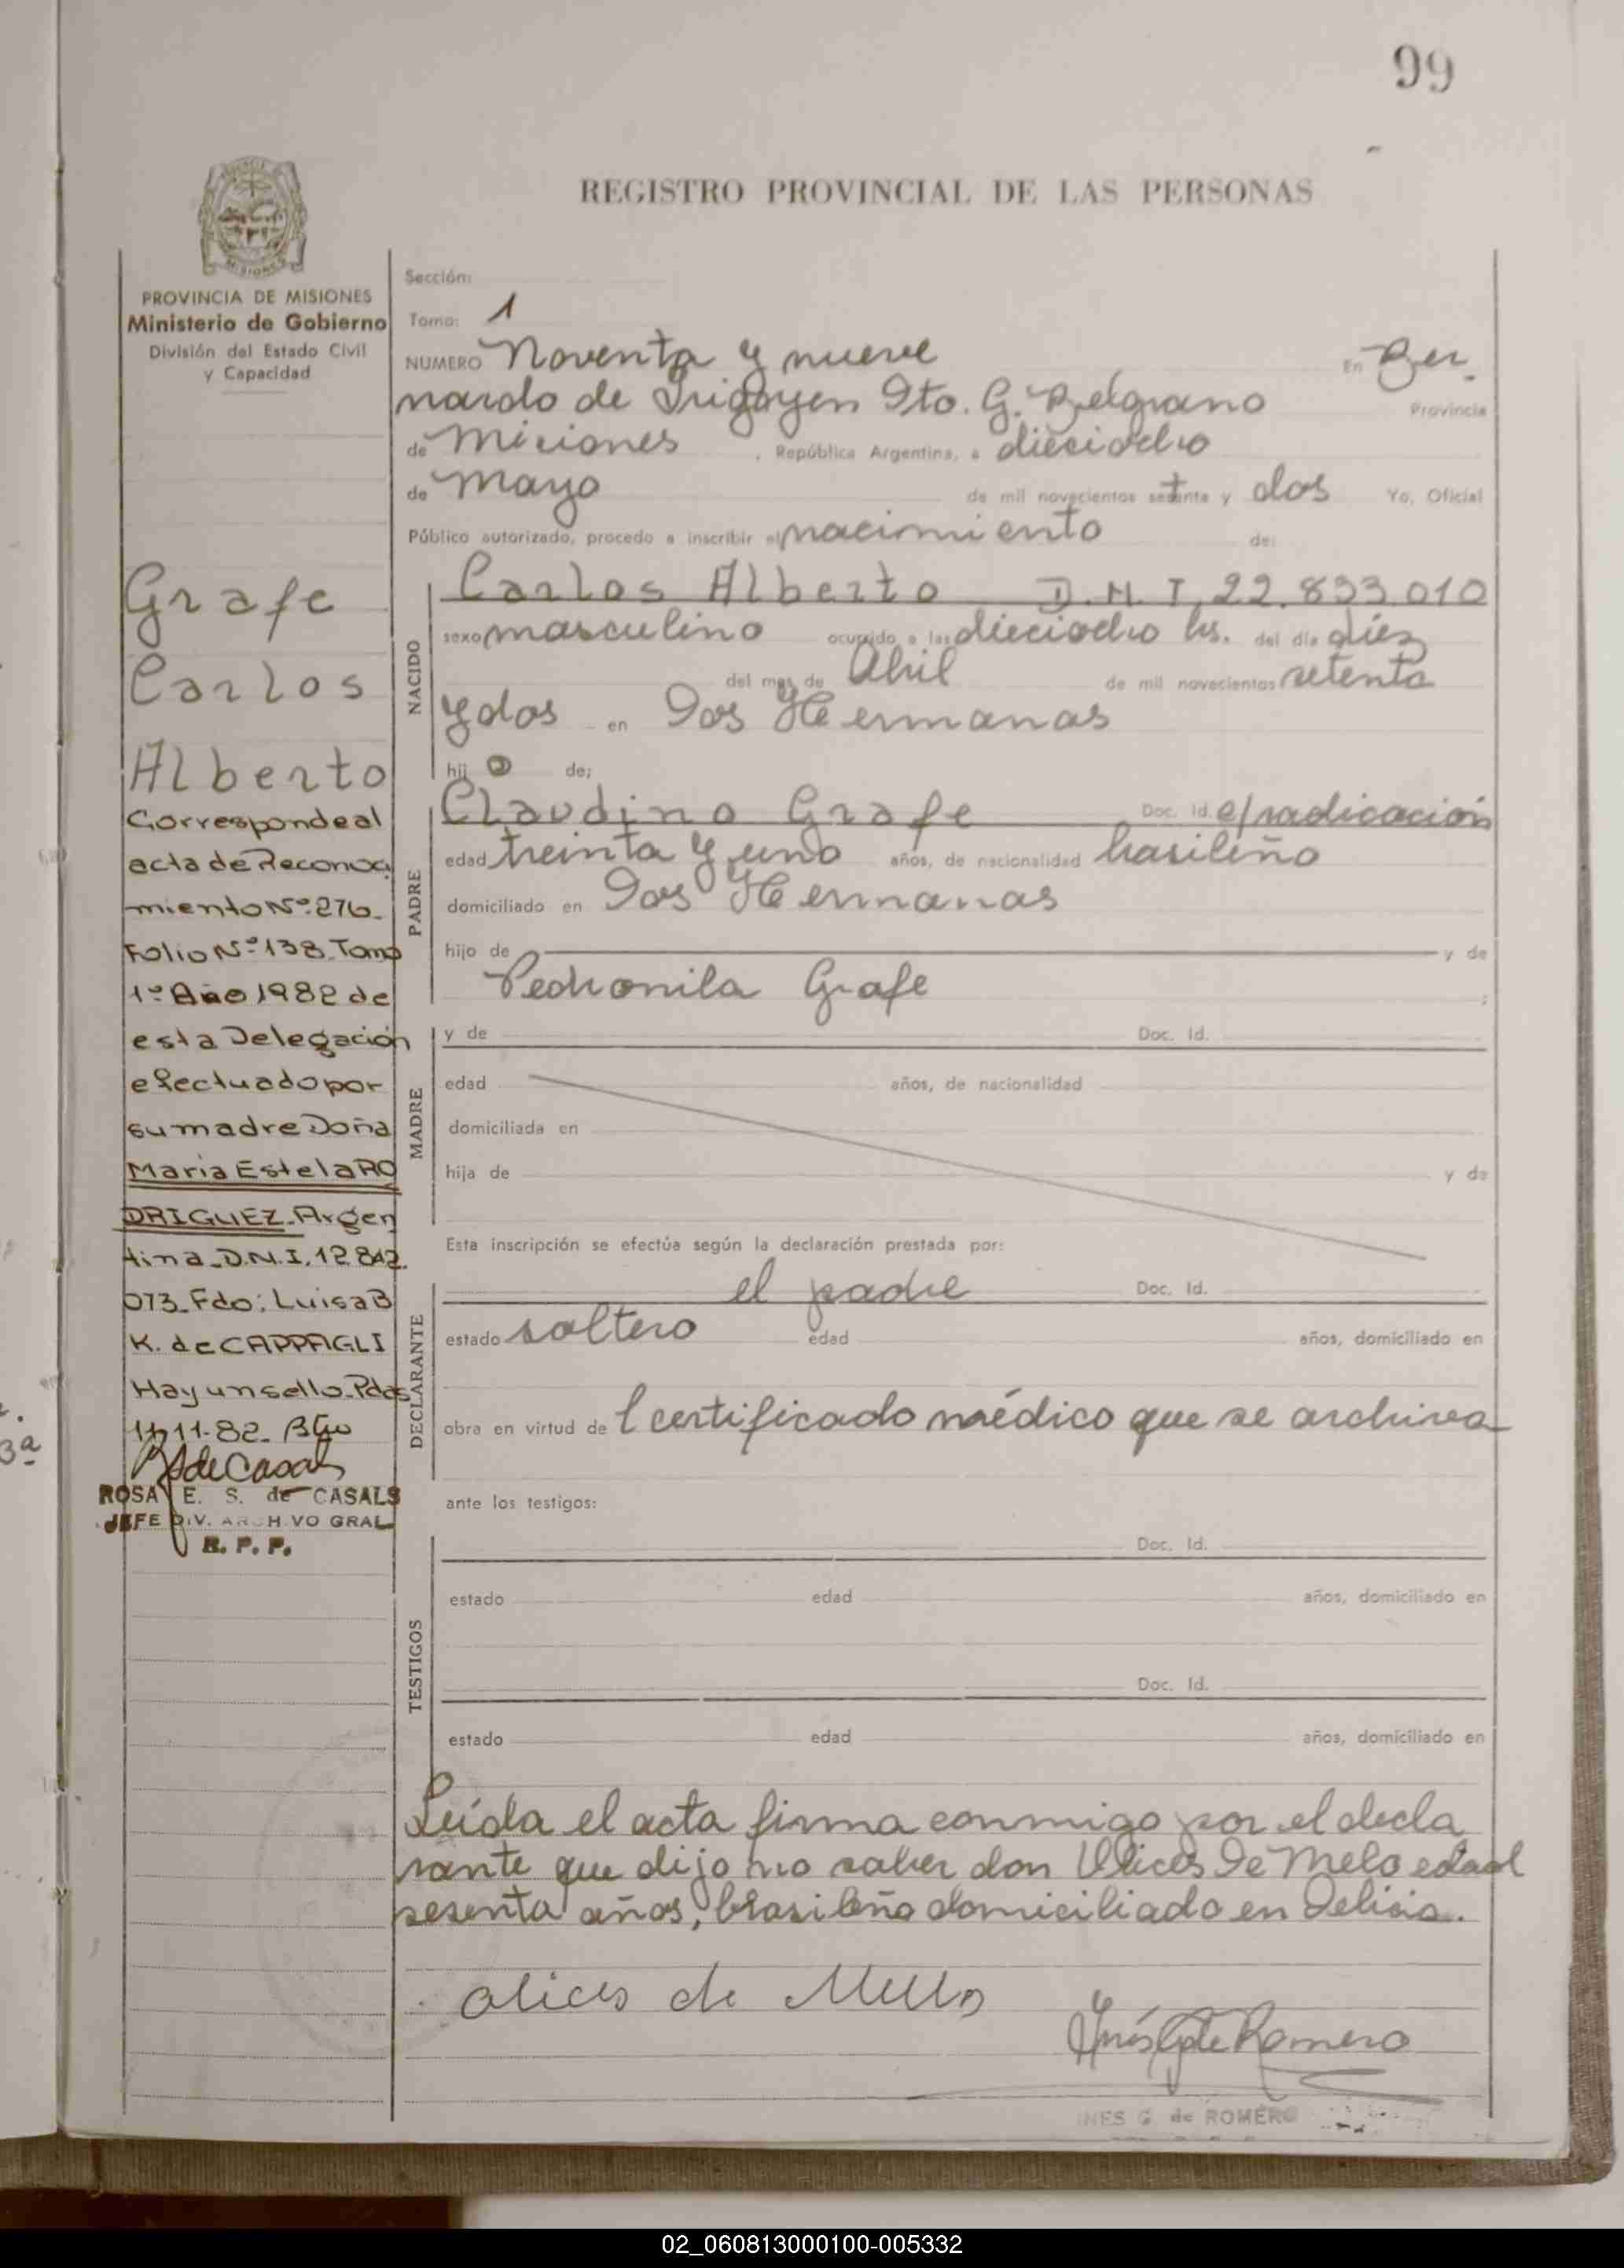 99
REGISTRO PROVINCIAL DE LAS PERSONAS
MISIONES
PROVINCIA DE MISIONES
Ministerio de Gobierno
División del Estado Civil
y Capacidad
Grafe
Carlos
Alberto
Correspondeal
acta de Reconoci
miento Nº 276.
Folio Nº 138 Tomo
1º Año 1982 de
esta Delegación
efectuado por
su madre Doña
Maria Estela RO
DRIGUEZ. Argen
tina. D.N.I. 12.842.
073. Fdo: Luisa B
K. de CAPPAGLI
Hay un sello. Pdas
11-11-82.
ROSA E. S. de CASALS
JEFE DIV. ARCHIVO GRAL
R. P. P.
Sección:
Tomo: 1
NUMERO Noventa y nueve En Ber
nardo de Irigoyen Dto. G. Belgrano Provincia
de Miciones , República Argentina, a dieciocho
de Mayo de mil novecientos setenta y dos Yo, Oficial
Público autorizado, procedo a inscribir el nacimiento de:
NACIDO
Carlos Alberto D.N.I. 22.833.010
sexo masculino ocurrido a las dieciocho hs. del día diez
del mes de Abril de mil novecientos setenta
y dos en Dos Hermanas
hijo de:
PADRE
Claudino Grafe Doc. Id. c/radicación
edad treinta y uno años, de nacionalidad brasileño
domiciliado en Dos Hermanas
hijo de y de
Pedronila Grafe ;
MADRE
y de Doc. Id.
edad años, de nacionalidad
domiciliada en
hija de y de
Esta inscripción se efectúa según la declaración prestada por:
DECLARANTE
el padre Doc. Id.
estado soltero edad años, domiciliado en
obra en virtud de l certificado médico que se archiva
ante los testigos:
TESTIGOS
Doc. Id.
estado edad años, domiciliado en
Doc. Id.
estado edad años, domiciliado en
Leída el acta firma conmigo por el decla
rante que dijo no saber don Ulices De Melo edad
sesenta años, brasileño domiciliado en Delicia.
olices de Mello
Inés G de Romero
INES G. de ROMERO
02_060813000100-005332